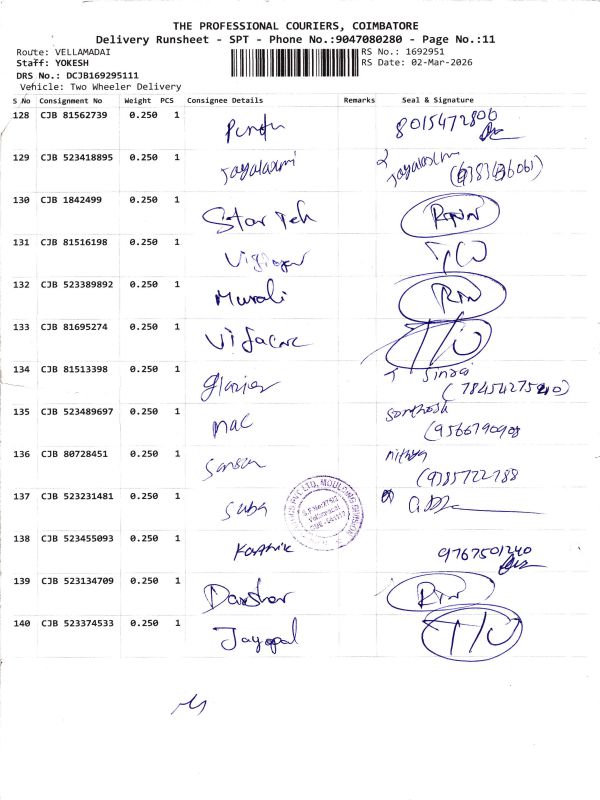 THE PROFESSIONAL COURIERS, COIMBATORE
Delivery Runsheet - SPT - Phone No.:9047080280 - Page No.:11
Route: VELLAMADAI
RS No.: 1692951
Staff: YOKESH
RS Date: 02-Mar-2026
DRS No.: DCJB169295111
Vehicle: Two Wheeler Delivery
S No Consignment No Weight PCS Consignee Details Remarks Seal & Signature
128 CJB 81562739 0.250 1 8015472800
129 CJB 523418895 0.250 1 Jayalaxmi
130 CJB 1842499 0.250 1 Star Teh
131 CJB 81516198 0.250 1
132 CJB 523389892 0.250 1 Murali RTN
133 CJB 81695274 0.250 1 T/O
134 CJB 81513398 0.250 1
135 CJB 523489697 0.250 1 Mac Santhosh
136 CJB 80728451 0.250 1 nithya
(9385722788
137 CJB 523231481 0.250 1 Suba
138 CJB 523455093 0.250 1 Karthik 9767501240
139 CJB 523134709 0.250 1 RTN
140 CJB 523374533 0.250 1 Jayopal T/O